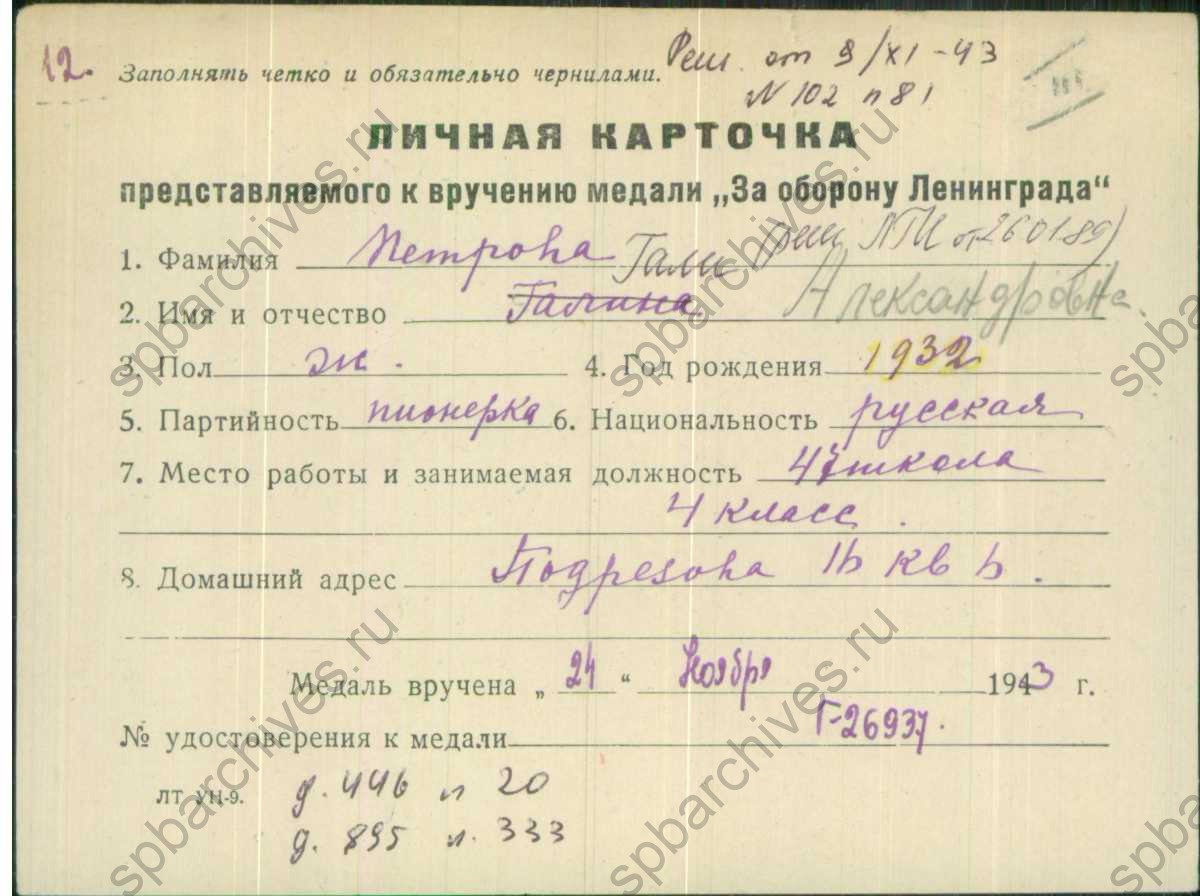 12.
Заполнять четко и обязательно чернилами. Реш. от 9/XI-43
N 102 п 81
ЛИЧНАЯ КАРТОЧКА
представляемого к вручению медали „За оборону Ленинграда“
1. Фамилия Петрова (реш
2. Имя и отчество Галина Александровна
3. Пол ж. 4. Год рождения 1932
5. Партийность пионерка 6. Национальность русская
7. Место работы и занимаемая должность 47 школа
4 класс.
8. Домашний адрес Подрезова 16 кв 6.
Медаль вручена „24“ Ноября 1943 г.
№ удостоверения к медали Г-26937.
ЛТ УП-9. д. 446 л 20
д. 895 л. 333
spbarchives.ru